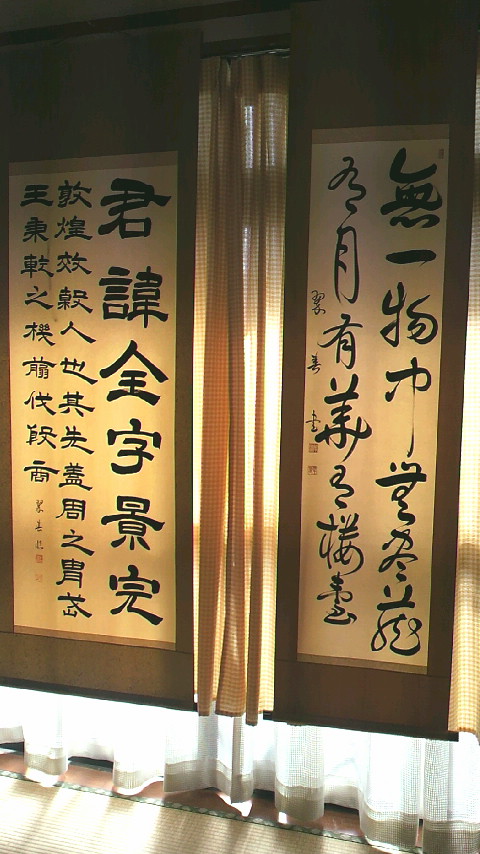 無一物中無尽蔵
有月有華有楼臺
翠春書
君諱全字景完
敦煌效穀人也其先蓋周之冑武
王秉乾之機翦伐殷商
翠春臨